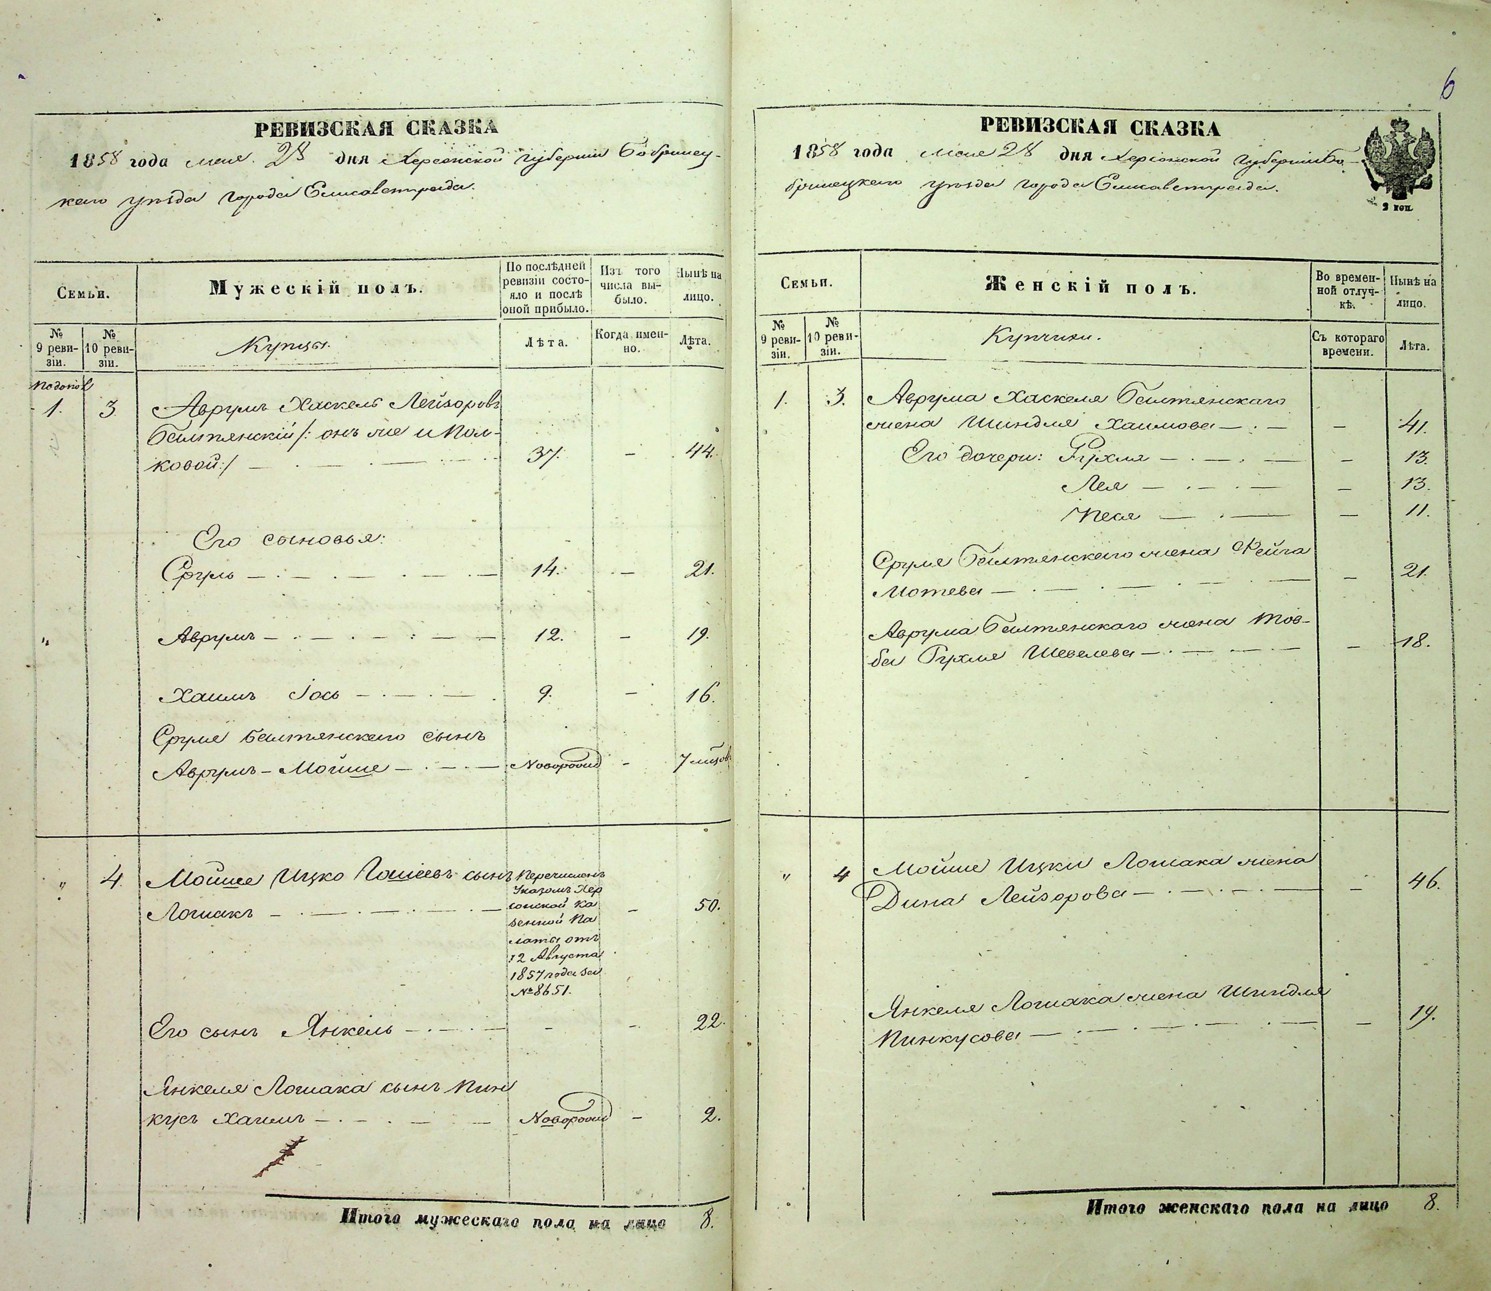 6
РЕВИЗСКАЯ СКАЗКА
1858 года мая 28 дня Херсонской губернии Бобринец-
каго уѣзда города Елисаветграда.
Семьи.
Мужескій полъ.
По послѣдней
ревизіи состо-
яло и послѣ
оной прибыло.
Изъ того
числа вы-
было.
Нынѣ на
лицо.
№
9 реви-
зіи.
№
10 реви-
зіи.
Купцы.
Лѣта.
Когда имен-
но.
Лѣта.
1. 3 Аврумъ Хаскель Лейзоровъ
Балтянскій /: онъ же и Пол-
ковой :/ — 37. — 44.
Его сыновья:
Сруль — 14. — 21.
„ Аврумъ — 12. — 19.
Хаимъ Іось — 9. — 16.
Сруля Балтянскаго сынъ
Аврумъ-Мойше — Новорожд — 7 мѣсяцовъ
„ 4 Мойше Ицко Гошіевъ сынъ
Лошакъ — 50.
Перечисленъ
Указомъ Хер
сонской Ка
зенной Па
латы отъ
12 Августа
1857 года за
№ 8651.
Его сынъ Янкель — - - 22.
Янкеля Лошака сынъ Пин
кусъ Хаимъ — Новорожд — 2.
Итого мужескаго пола на лицо 8.
РЕВИЗСКАЯ СКАЗКА
1858 года мая 28 дня Херсонской губерніи Бо-
бринецкаго уѣзда города Елисаветграда.
2 коп.
Семьи.
Женскій полъ.
Во времен-
ной отлуч-
кѣ.
Нынѣ на
лицо.
№
9 реви-
зіи.
№
10 реви-
зіи.
Купчихи.
Съ котораго
времени.
Лѣта.
1. 3. Аврума Хаскеля Балтянскаго
жена Шиндля Хаимова — — 41.
Его дочери: Рухля — — 13.
Лея — — 13.
Песя — — 11.
Сруля Балтянскаго жена Фейга
Мотева — — 21.
Аврума Балтянскаго жена Тов-
ба Рухля Шевелева — — 18.
„ 4 Мойше Ицки Лошака жена
Дина Лейзорова — — 46.
Янкеля Лошака жена Шиндля
Пинкусова — — 19.
Итого женскаго пола на лицо 8.